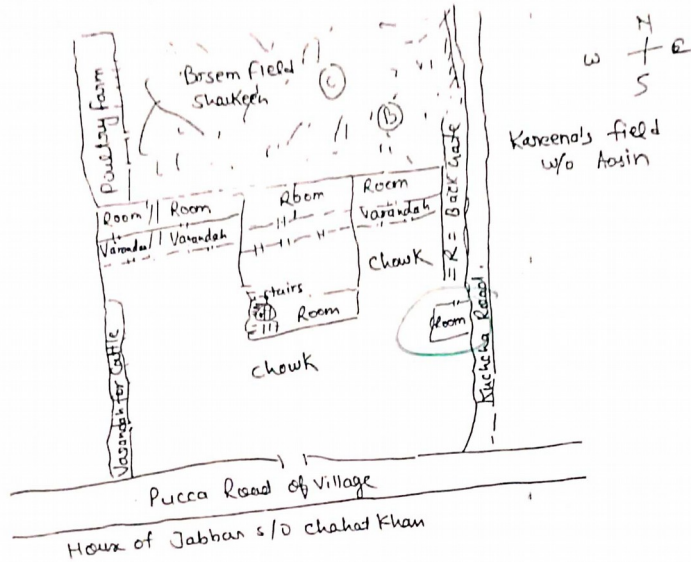 N
W E
S
Poultry farm
Borsem field
Sharkeen
C
B
= R = Back Gate
Kareena's field
w/o Aasin
Room Room
Room
Room
Varandah Varandah
Varandah
Chowk
Stairs
Room
Room
Chowk
Varandah for Cattle
Kuchcha Road.
Pucca Road of Village
House of Jabbar s/o Chahat Khan